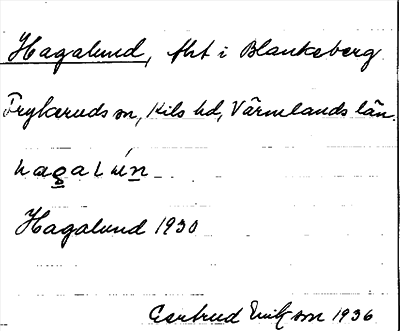 Hagalund, fht i Blankeberg
Frykeruds sn, Kils hd, Värmlands län.
hagalún
Hagalund 1930
Gertrud Erikson 1936